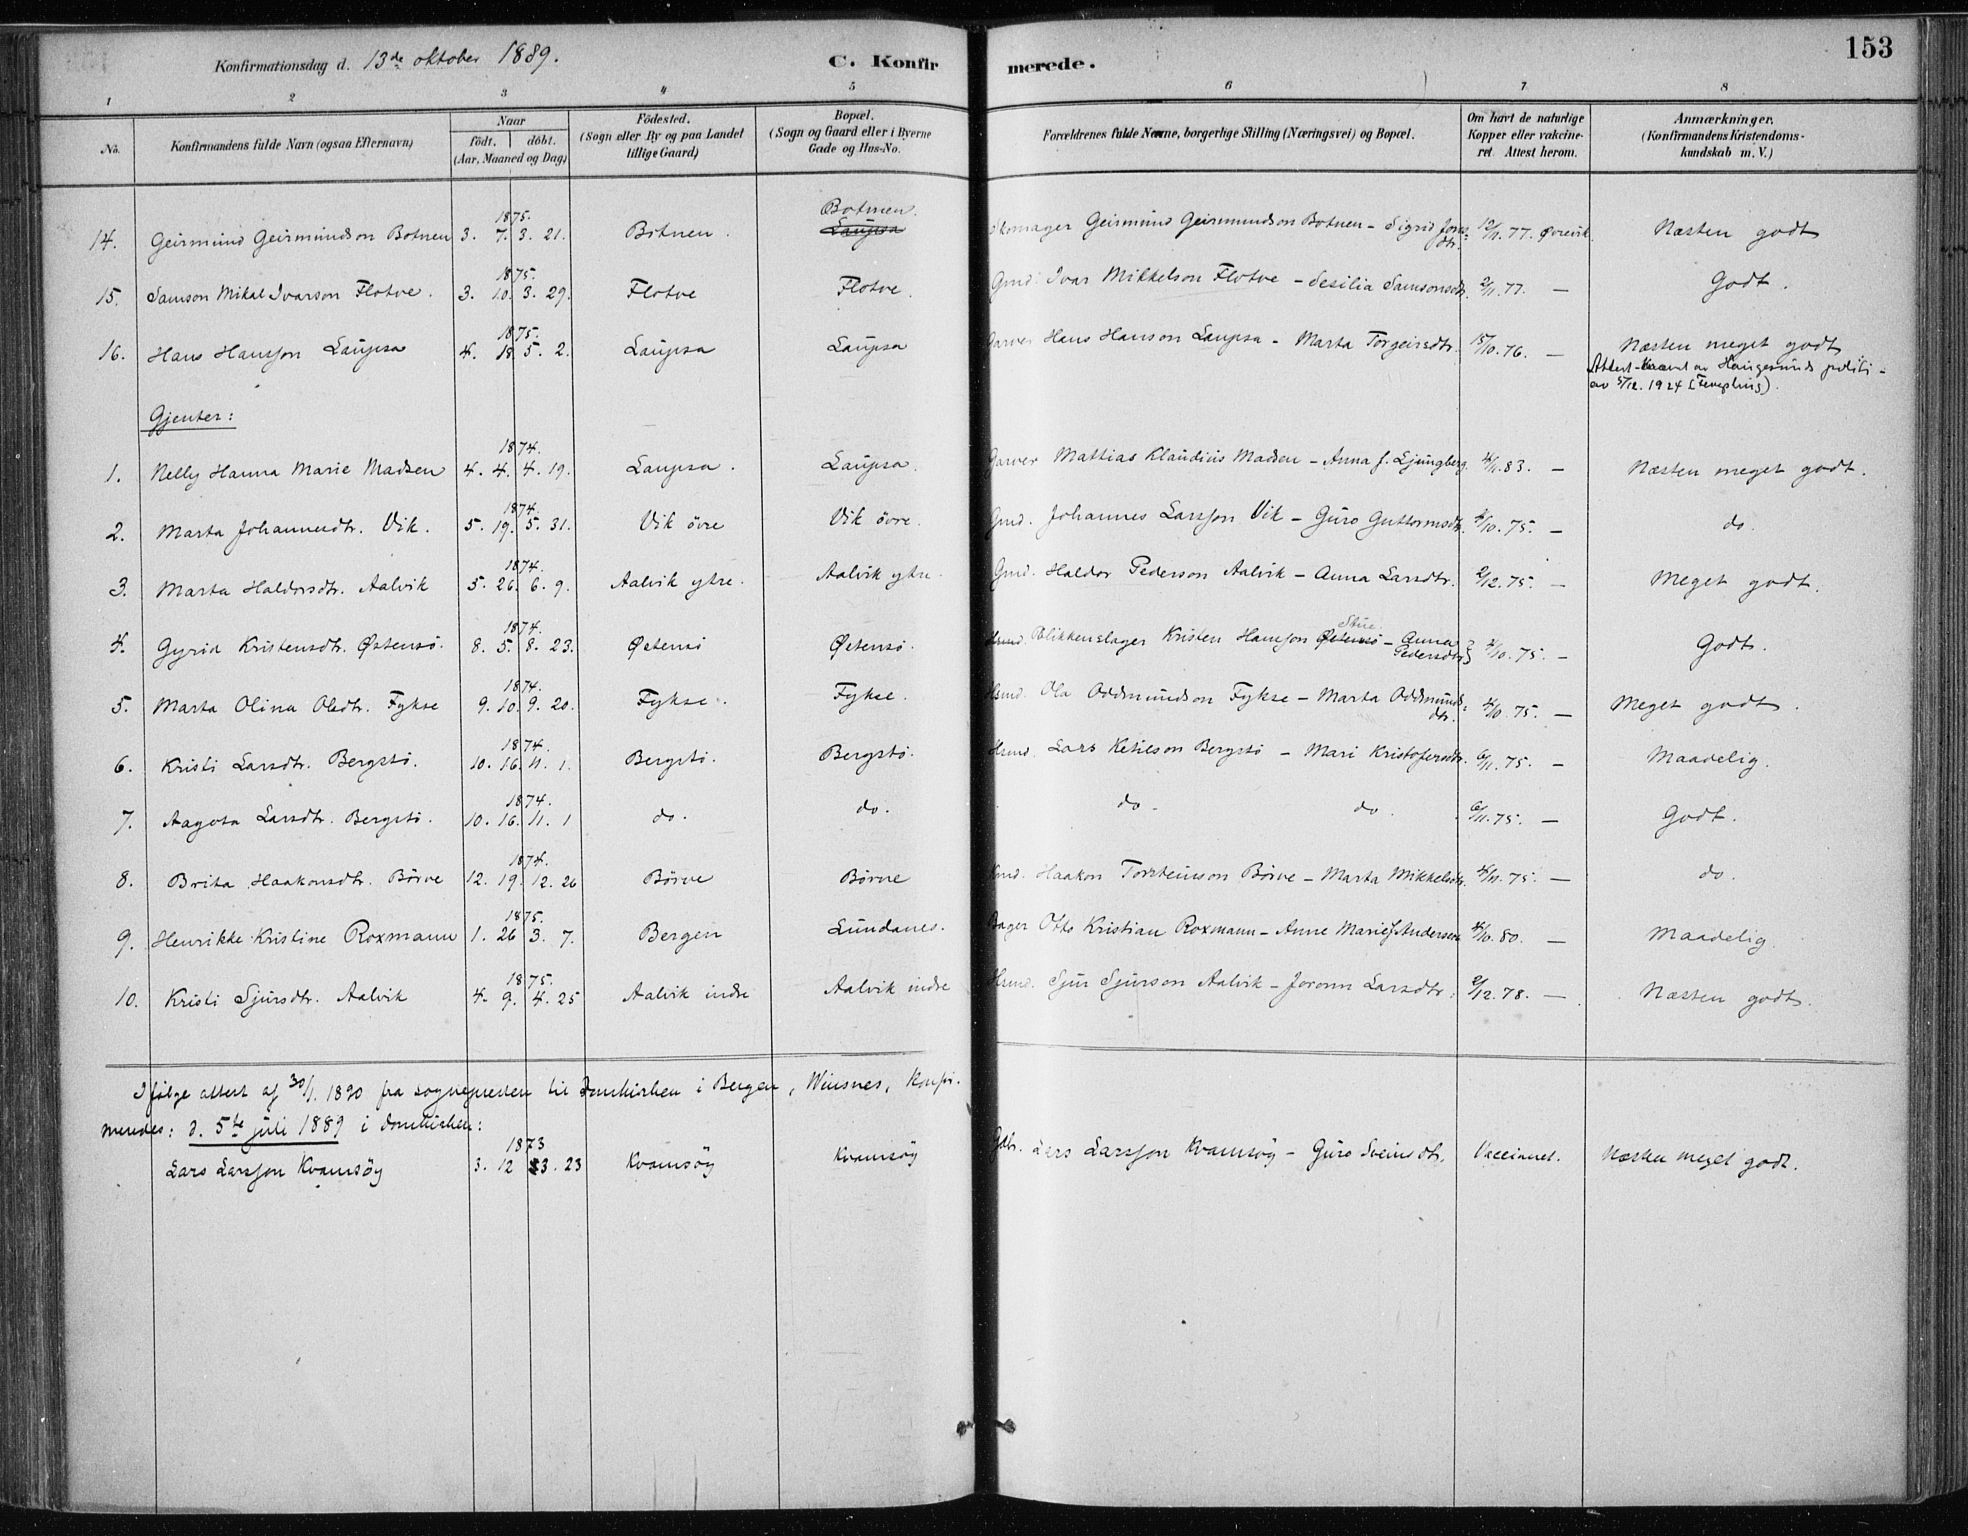 153
Konfirmationsdag d. 13de oktober 1889. C. Konfirmerede.
1 2 3 4 5 6 7 8
No. Konfirmandens fulde Navn (ogsaa Efternavn) Naar födt. döbt. (Aar, Maaned og Dag) Födested. (Sogn eller By og paa Landet tillige Gaard) Bopæl. (Sogn og Gaard eller i Byerne Gade og Hus-No. Forældrenes fulde Navne, borgerlige Stilling (Næringsvei) og Bopæl. Om havt de naturlige Kopper eller vakcineret. Attest herom. Anmærkninger. (Konfirmandens Kristendomskundskab m. V.)
14. Geirmund Geirmundson Botnen 1875. 3. 7. 3. 21. Botnen. Botnen. Laupsa Skomager Geirmund Geirmundson Botnen - Sigrid Jonsdtr. 12/11. 77. Næsten godt
15. Samson Mikal Ivarson Flotve. 1875. 3. 10. 3. 29. Flotve Flotve. Gmd. Ivar Mikkelson Flotve - Sesilia Samsonsdtr. 2/11. 77. — Godt.
16. Hans Hansson Laupsa 1875. 4. 18. 5. 2. Laupsa Laupsa Garver Hans Hanson Laupsa - Marta Torgeirsdtr. 15/10. 76. — Næsten meget godt
Attest av Haugesunds politi- av 5/12. 1924
Gjenter:
1. Nelly Hanna Marie Madsen 1874. 4. 4. 4. 19. Laupsa. Laupsa. Garver Mattias Klaudius Madsen - Anna J. Ljungberg. 4/11. 83. — Næsten meget godt.
2. Marta Johannesdtr. Vik. 1874. 5. 19. 5. 31. Vik övre Vik övre. Gmd. Johannes Larsson Vik - Guro Guttormsdtr. 4/10. 75. — do.
3. Marta Haldorsdtr. Aalvik 1874. 5. 26. 6. 9. Aalvik ytre. Aalvik ytre. Gmd. Haldor Pederson Aalvik - Anna Larsdtr. 2/12. 75. — Meget godt.
4. Gyrid Kristensdtr. Østensö. 1874. 8. 5. 8. 23. Østensö Østensö. Hsmd. Blikkenslager Kristen Hansson Østensö Stue - Anna Pedersdtr. 4/10. 75. — Godt.
5. Marta Olina Olsdtr. Fykse 1874. 9. 10. 9. 20. Fykse. Fykse. Hsmd. Ola Oddmundson Fykse - Marta Oddmundsdtr. 4/10. 75. — Meget godt.
6. Kristi Larsdtr. Bergstö. 1874. 10. 16. 11. 1. Bergstö. Bergstö. Hsmd. Lars Ketilson Bergstö - Mari Kristofersdtr. 6/11. 75. — Maadelig.
7. Aagota Larsdtr. Bergstö. 1874. 10. 16. 11. 1 do. do. do. do. 6/11. 75. — Godt.
8. Brita Haakonsdtr. Börve 1874. 12. 19. 12. 26 Börve Börve Haakon Torsteinson Börve - Marta Mikkelsdtr. 4/11. 75. — do.
9. Henrikke Kristine Roxmann 1875. 1. 26 3. 7. Bergen Lundanes. Bager Otto Kristian Roxmann - Anne Marie Andersen 4/10. 80. — Maadelig.
10. Kristi Sjursdtr. Aalvik 1875. 4. 9. 4. 25 Aalvik indre Aalvik indre Hsmd. Sjur Sjurson Aalvik - Joronn Larsdtr. 2/12. 78. — Næsten godt.
Ifölge attest af 30/1. 1890 fra sognepresten til Domkirken i Bergen, Winsnes, konfirmeredes: d. 5te juli 1889 i domkirken:
Lars Larsson Kvamsöy 1873 3. 12 3. 23 Kvamsöy Kvamsöy Gdbr. Lars Larsson Kvamsöy - Guro Sveinsdtr. Vaccineret. Næsten meget godt.